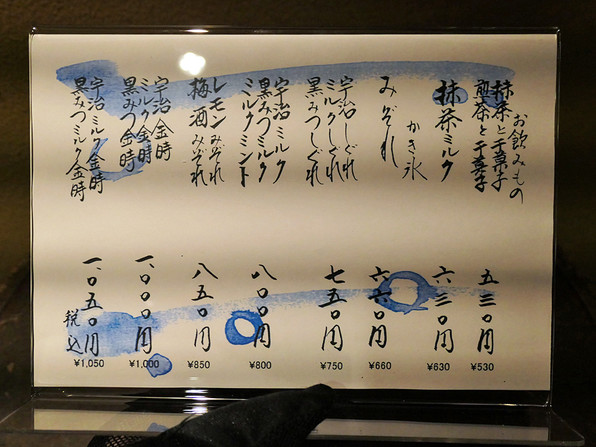 お飲みもの
抹茶と干菓子
煎茶と干菓子
五三〇円
¥530
抹茶ミルク
六三〇円
¥630
かき氷
みぞれ
六六〇円
¥660
宇治しぐれ
ミルクしぐれ
黒みつしぐれ
七五〇円
¥750
宇治ミルク
黒みつミルク
ミルクミント
八〇〇円
¥800
レモンみぞれ
梅酒みぞれ
八五〇円
¥850
宇治金時
ミルク金時
黒みつ金時
一、〇〇〇円
¥1,000
宇治ミルク金時
黒みつミルク金時
一、〇五〇円
¥1,050
税込